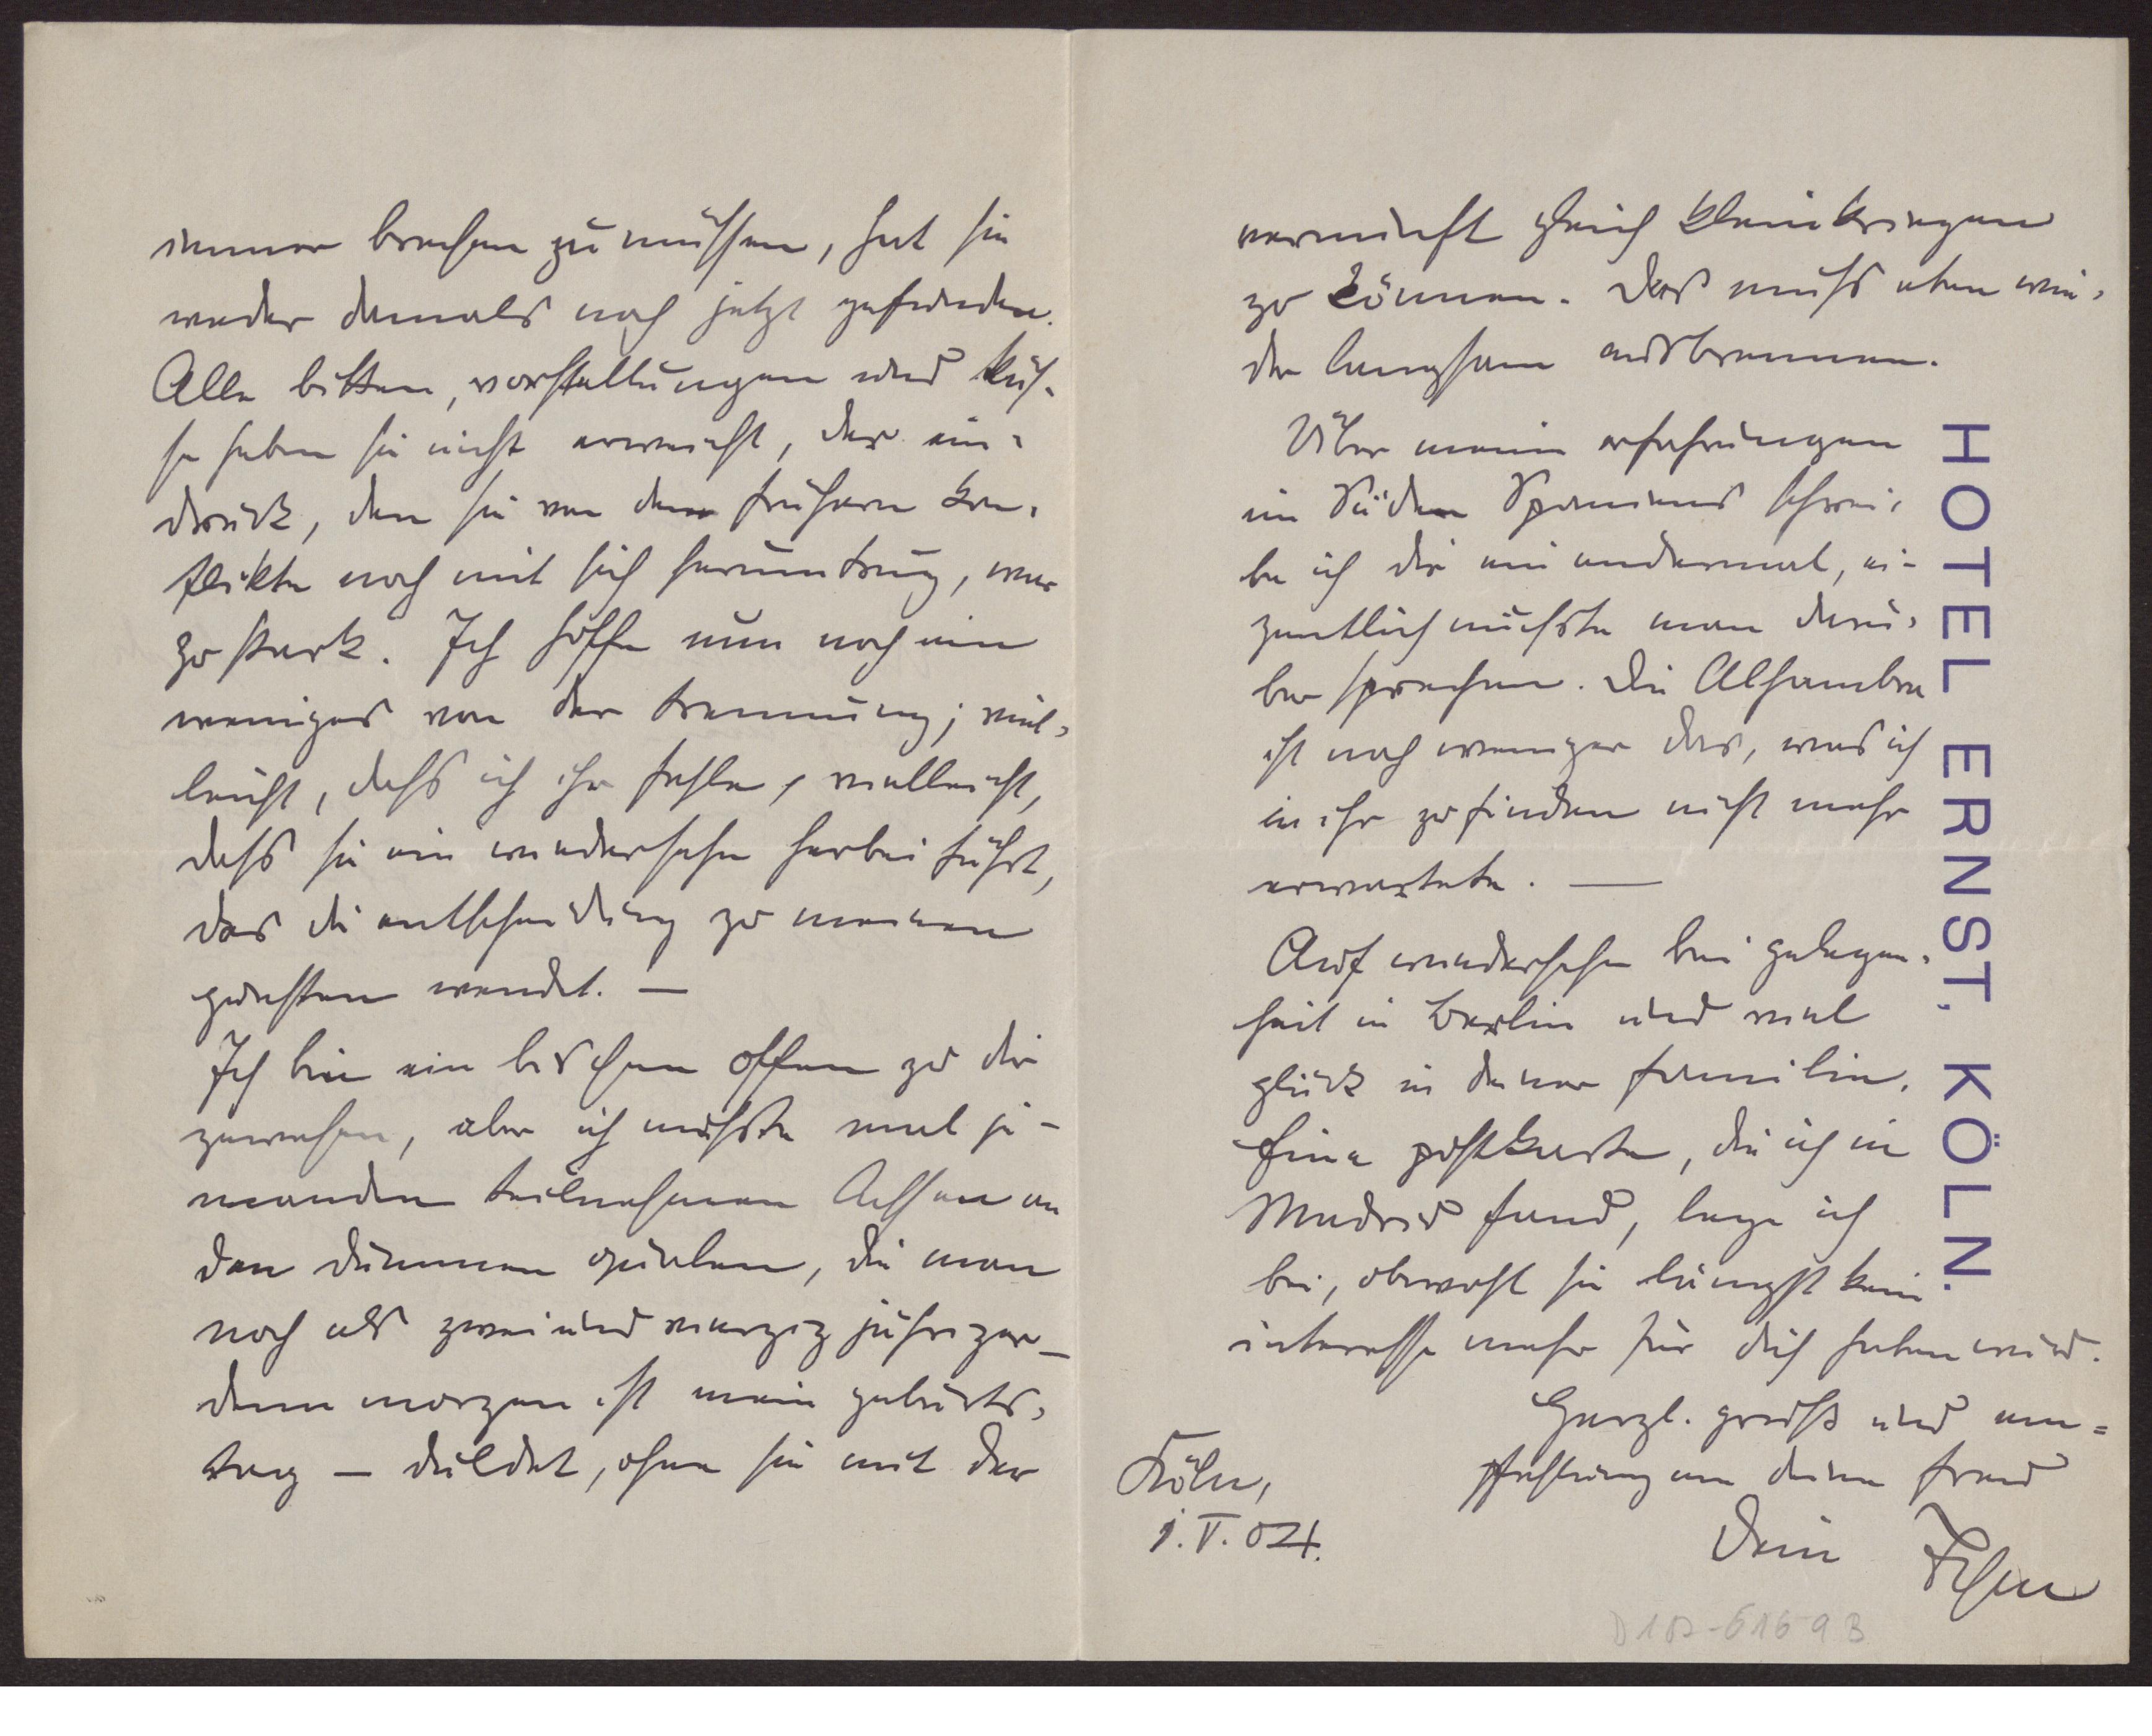 immer brechen zu müssen, hat sie
weder damals noch jetzt gefunden.
Alle bitten, vorstellungen und küs-
se haben sie nicht erweicht, der ein-
druck, den sie von dem frühern kon-
flikte noch mit sich herumtrug, war
zu stark. Ich hoffe nun noch ein
weniges von der trennung; viel-
leicht, dass ich ihr fehle, vielleicht,
dass sie ein wiedersehn herbei führt,
das die entscheidung zu meinen
gunsten wendet. —
Ich bin ein bischen offen zu dir
gewesen, aber ich musste mal je-
manden teilnehmen lassen an
den dummen qualen, die man
noch als zweiundvierzigjähriger —
denn morgen ist mein geburts-
tag — duldet, ohne sie mit der
vernunft gleich kleinkriegen
zu können. Das muss eben wie-
der langsam ausbrennen.
Über meine erfahrungen
im Süden Spaniens schrei-
be ich dir ein andermal, ei-
gentlich müsste man darü-
ber sprechen. Die Alhambra
ist noch weniger das, was ich
in ihr zu finden nicht mehr
erwartete. —
Auf wiedersehn bei gelegen-
heit in Berlin und viel
glück in deiner familie.
Eine postkarte, die ich in
Madrid fand, lege ich
bei, obwohl sie längst kein
interesse mehr für dich haben wird.
Herzl. gruss und em-
pfehlung an deine frau
Dein
Köln,
1.V.04.
HOTEL ERNST, KÖLN.
D 182-6169 B